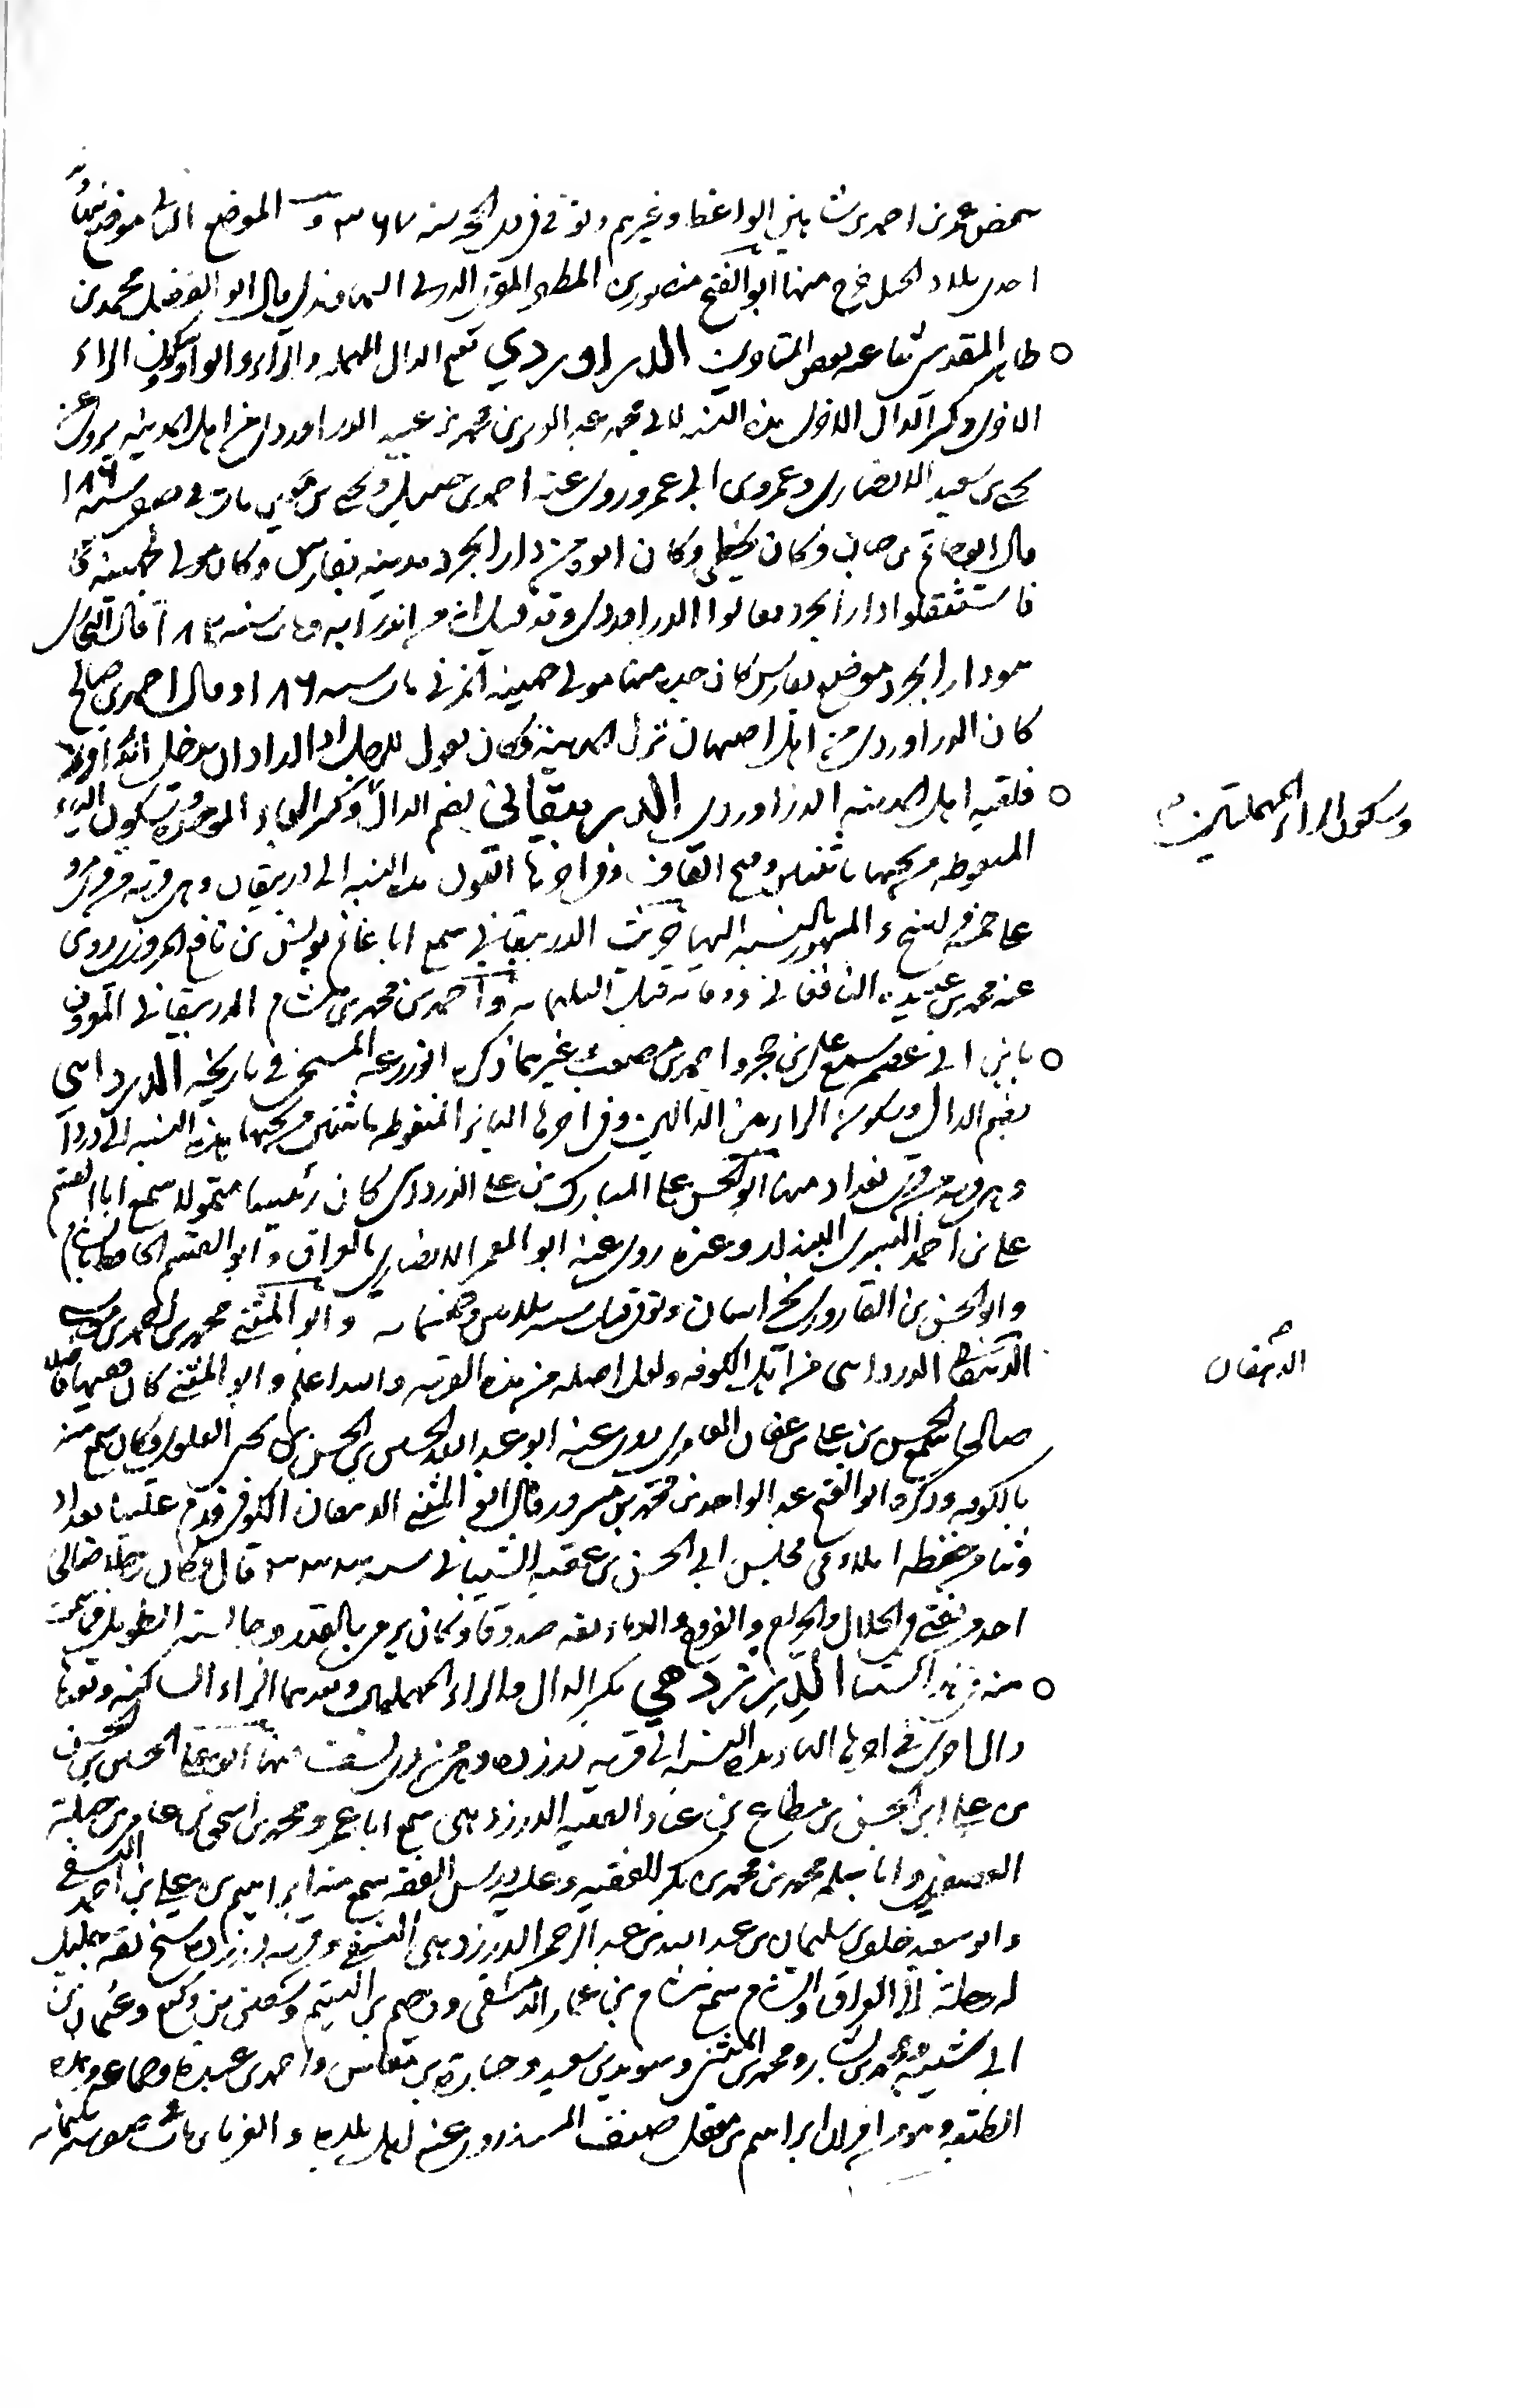 حفص عمر بن احمد بن شاهين الواعظ وغيرهم وتوفي في ذي الحجة سنه ٣٦٧ و الموضع الثاني موضع
احدى بلاد الجبل خرج منها ابو الفتح منصور بن المطهر المقرئ قال ابو الفضل محمد بن
طاهر المقدسي ثنا عنه بعض المتاخرين الدراوردي بفتح الدال المهملة والراء والواو وسكون الراء
الاخرى وكسر الدال الاخرى هذه النسبة لابي محمد عبد العزيز بن محمد بن عبيد الدراوردي من اهل المدينة يروي عن
يحيى بن سعيد الانصاري وعمرو بن ابي عمرو روى عنه احمد بن حنبل ويحيى بن معين مات في صفر سنة ١٨٦
قال ابو حاتم بن حبان وكان يخطئ وكان ابوه من دارابجرد مدينة بفارس وكان مولى لجهينة
فاستثقلوا دارابجرد فقالوا الدراوردي وقد قيل انه من اندرابه ومات سنة ١٨٢ قال البخاري
دارابجرد موضع بفارس كان جده منها مولى جهينة المزني مات سنة ١٨٦ وقال احمد بن صالح
كان الدراوردي من اهل اصبهان نزل المدينة وكان يقول للرجل اذا اراد ان يدخل اندراور
فلقبه اهل المدينة الدراوردي الدربيقاني بضم الدال وكسر الباء الموحدة وسكون الياء
المنقوطة من تحتها باثنتين وفتح القاف وفي اخرها النون هذه النسبة الى دربيقان وهي قرية من مرو
على خمسة فراسخ والمشهور بالنسبة اليها حريث الدربيقاني سمع ابا غانم يونس بن نافع المروزي روى
عنه محمد بن عبيدة النافقاني ووفاته قبل الثلثمائة واحمد بن محمد بن هشام الدربيقاني المعروف
بابن ابي عصم سمع علي بن حجر واحمد بن مصعب وغيرهما ذكره ابو زرعة السنجي في تاريخه الدردائي
بضم الدال وسكون الراء بين الدالين وفي اخرها الياء المنقوطة باثنتين من تحتها هذه النسبة الى دردا
وهي قرية من قرى بغداد منها ابو الحسن علي المبارك بن علي الدردائي كان رئيسا متمولا سمع ابا القسم
علي بن احمد البسري البندار وغيره روى عنه ابو المعمر الانصاري بالعراق وابو القسم الحافظ بالشام
وابو الحسن بن القاروري بخراسان وتوفي قبل سنة ثلاثين وخمسمائة وابو المثنى محمد بن احمد بن موسى
الدهقان الدردائي من اهل الكوفة ولعل اصله من هذه القرية والله اعلم وابو المثنى كان فقيها فاضلا
صالحا سمع الحسن بن علي بن عفان العامري روى عنه ابو عبد الله الحسين بن الحسن بن يحيى العلوي وكان سمع منه
بالكوفة وذكره ابو الفتح عبد الواحد بن محمد بن مسرور وقال ابو المثنى الدهقان الكوفي قدم علينا بغداد
وثنا من حفظه املاء في مجلس ابي الحسن بن عقبة الشيباني سنة ٣٣٣ قال وكان رجلا صالحا
احد من يفتي في الحلال والحرام والفروج والدماء ثقة صدوقا وكان يرمى بالقدر وجالسته الطويل فما سمعت
منه من هذا شيئا الدرزدهي بكسر الدال والراء المهملتين وبعدهما الزاء الساكنة وبعدها
دال اخرى وفي اخرها الهاء هذه النسبة الى قرية درزده وهي من قرى نسف منها ابو علي الحسين
بن علي ابن الحسن بن مطاع بن عباد الفقيه الدرزدهي سمع ابا عمرو محمد بن اسحق بن عامر بن جبلة
العصفري وابا سلمة محمد بن محمد بن بكر الفقيه وعليه درس الفقه سمع منه ابراهيم بن علي بن احمد النسفي
وابو سعيد خلف بن سليمان بن عبد الله بن عبد الرحمن الدرزدهي النسفي وقرية درزده شيخ ثقة جليل
له رحلة الى العراق والشام سمع هشام بن عمار الدمشقي ودحيم بن اليتيم وسفين بن وكيع وعثمان بن
ابي شيبة ومحمد بن بشار ومحمد بن المثنى وسويد بن سعيد وجبارة بن مغلس واحمد بن عبدة وجماعة هذه
الطبقة وهو من اقران ابراهيم بن معقل صنف المسند روى عنه اهل بلده والغرباء مات في صفر سنة ثلثمائة
وسكون الراء المهملتين
الدهقان